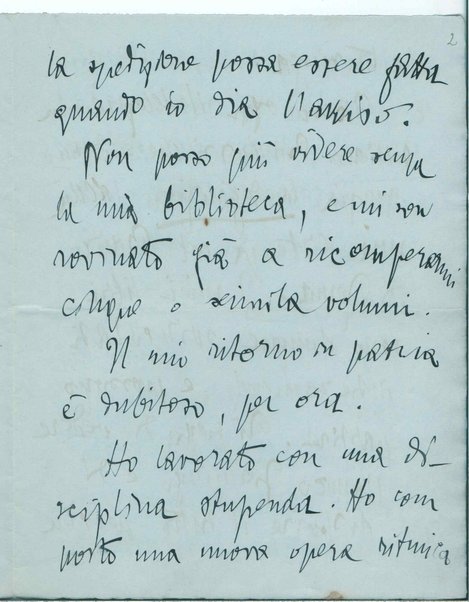 2
la spedizione possa essere fatta
quando io dia l'avviso.
Non posso più vivere senza
la mia biblioteca, e mi son
rovinato già a ricomperarmi
cinque o seimila volumi.
Il mio ritorno in patria
è dubitoso, per ora.
Ho lavorato con una di-
sciplina stupenda. Ho com
posto una nuova opera ritmica